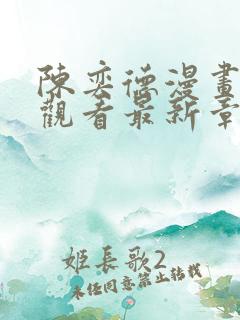 陳奕德漫畫
觀看最新章
姬長歌2
未经同意禁止转载